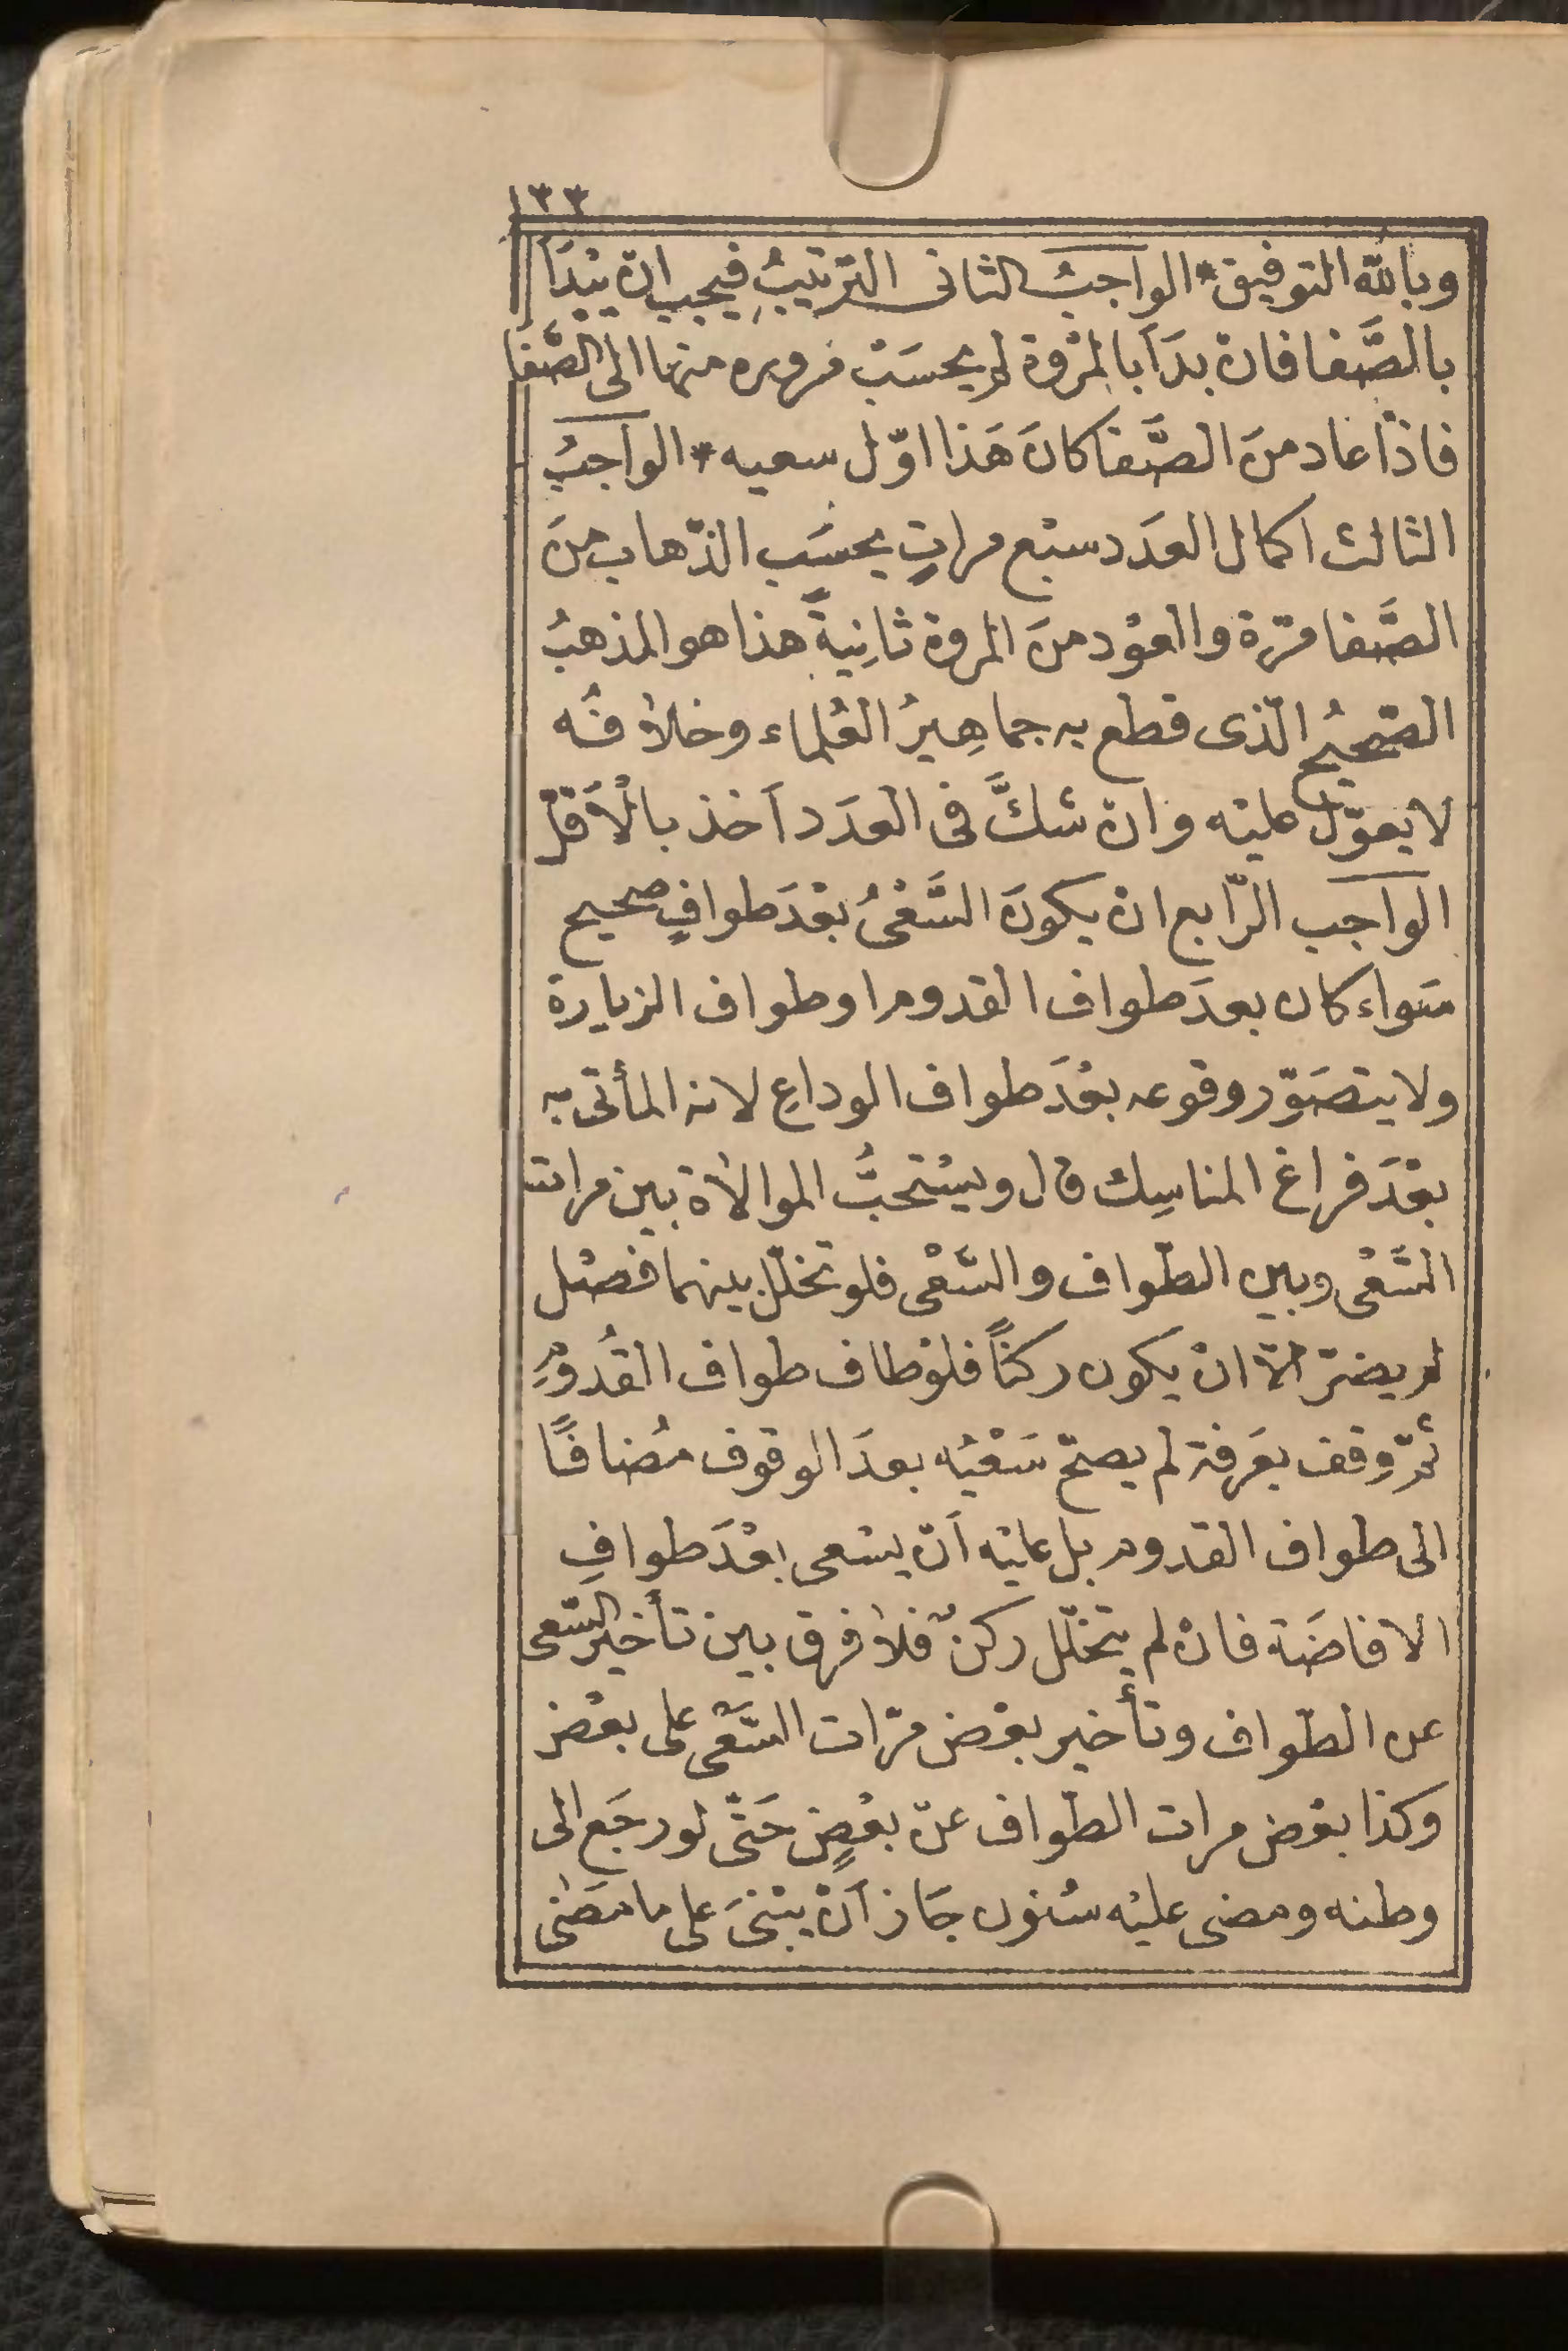 ١٣٣
وبالله التوفيق * الواجبُ الثانى الترتيبُ فيجب انْ يبْدَأَ
بالصَّفا فان بدَأَ بالمرْوة لم يحسَبْ مروره منها الى الصَّفا
فاذَا عاد منَ الصَّفا كانَ هَذا اوّل سعيه * الواجبُ
الثالث اكمال العدَد سبْع مراتٍ يحسَب الذّهاب منَ
الصَّفا مرّة والعوْد منَ المروة ثانِيةً هذا هو المذهبُ
الصّحيحُ الّذى قطع به جماهِيرُ العُلماء وخلافُه
لا يعوّل عليْه وان شكَّ فى العدَد اَخذ بالْاَقلّ
الواجب الرّابع ان يكونَ السَّعْىُ بعْدَ طوافٍ صحيح
سَواء كان بعدَ طواف القدوم او طواف الزيارة
ولا يتصَوّر وقوعه بعْدَ طواف الوداعِ لانه المأتى به
بعْدَ فراغ المناسِك قال ويسْتحبُّ الموالاة بين مرات
السَّعْى وبين الطّواف والسَّعْى فلو تخلّل بينهما فصْل
لم يضرّ الّا انْ يكون ركناً فلوْ طاف طواف القُدوْمِ
ثمّ وقف بعَرفة لم يصحّ سَعْيُه بعدَ الوقوف مُضافًا
الى طواف القدوم بل عليْه اَنْ يسْعى بعْدَ طوافِ
الافاضَة فانْ لم يتخلّل ركنٌ فلا فرق بين تأخير السّعى
عن الطّواف وتأخير بعْض مرّات السَّعْى على بعْض
وكذا بعْض مرات الطّواف عنْ بعْضٍ حَتّى لو رجَع الى
وطنه ومضى عليْه سُنون جَاز اَنْ يبْنىَ على ما مَضٰى